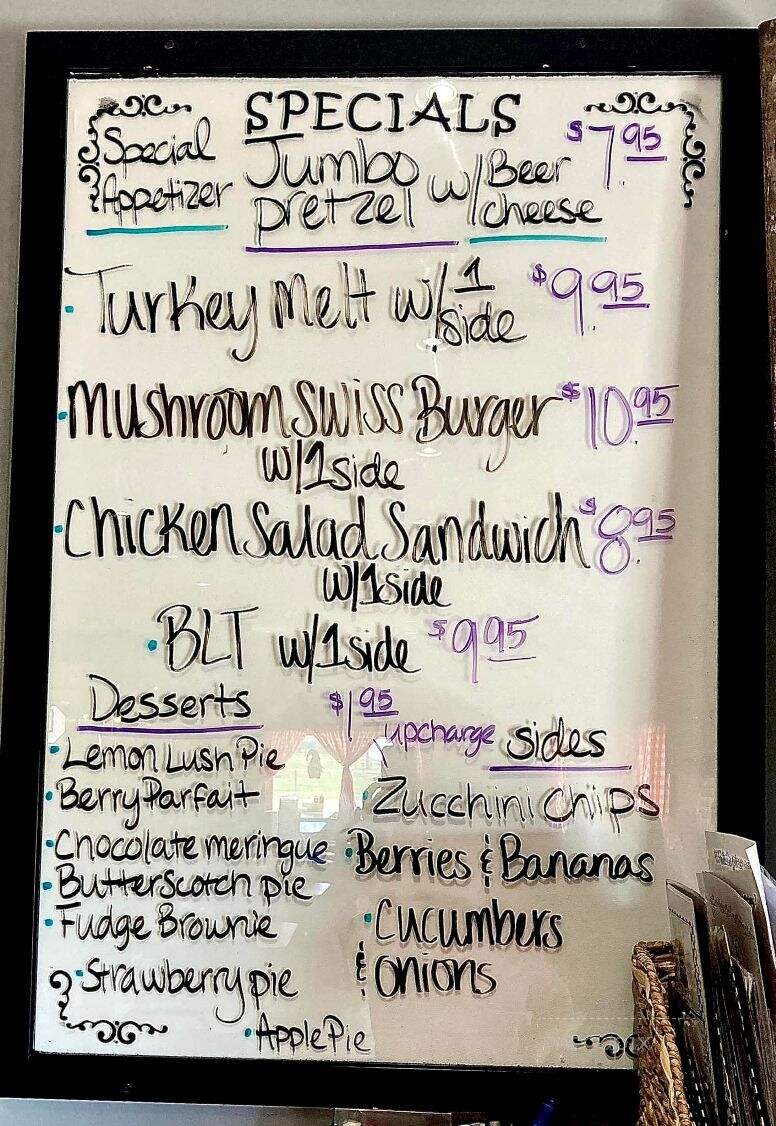 SPECIALS
Special Appetizer
Jumbo pretzel w/ Beer cheese $7.95
Turkey Melt w/ 1 side $9.95
Mushroom Swiss Burger $10.95
w/1 side
Chicken Salad Sandwich $8.95
w/1 side
BLT w/1 side $9.95
Desserts
Lemon Lush Pie
Berry Parfait
Chocolate meringue
Butterscotch pie
Fudge Brownie
Strawberry pie
Apple Pie
$1.95 upcharge
sides
Zucchini Chiips
Berries & Bananas
Cucumbers
& onions